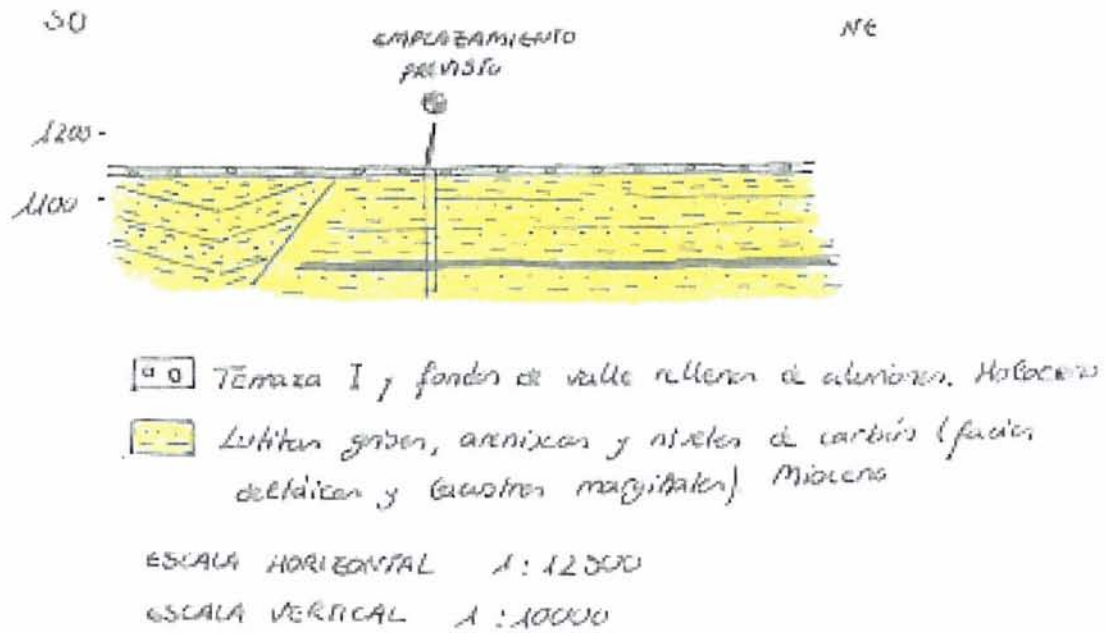 SO
NE
EMPLAZAMIENTO
PREVISTO
1200-
1100
Terraza I y fondos de valle rellenos de aluviones. Holoceno
Lutitas grises, areniscas y niveles de carbón (facies
deltáicas y lacustres marginales) Mioceno
ESCALA HORIZONTAL 1:12500
ESCALA VERTICAL 1:10000